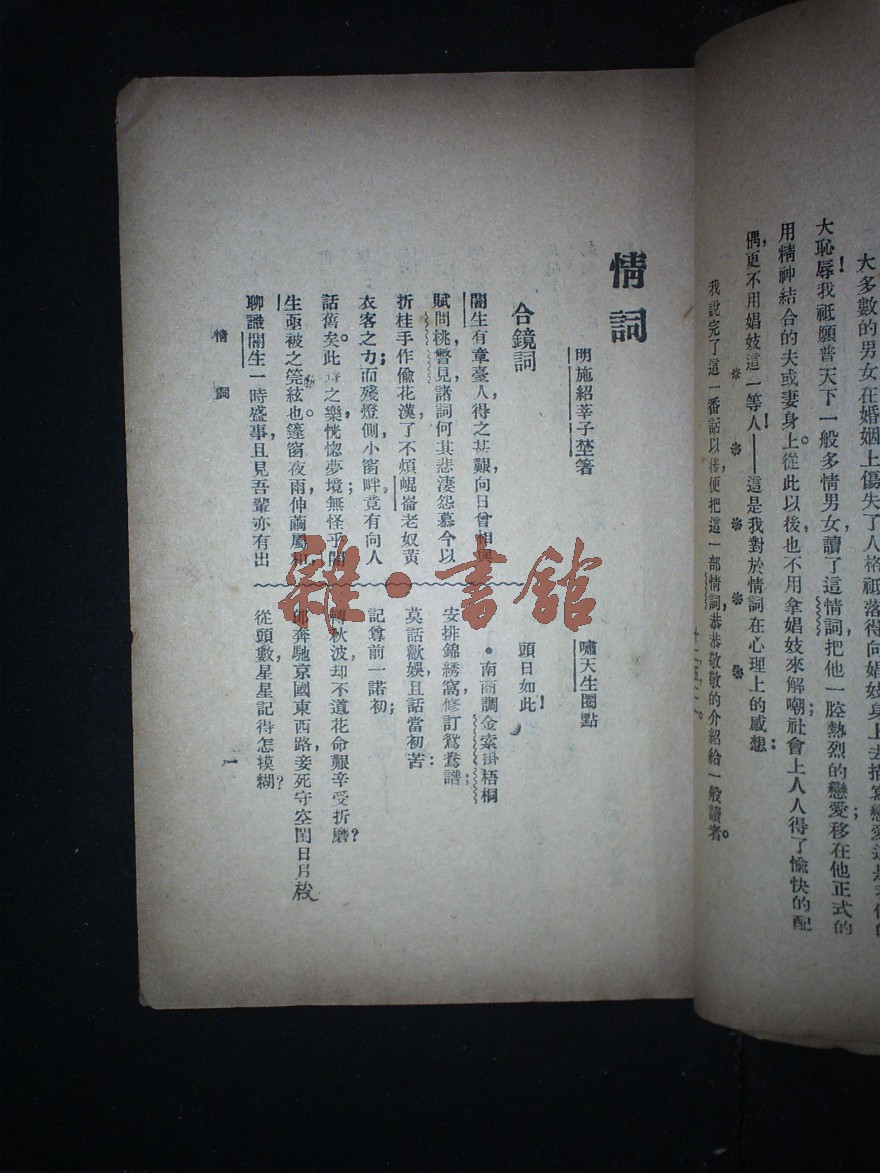 大多數的男女在婚姻上傷失了人格祇落得向娼妓身上去描寫戀愛這是
大恥辱!我祇願普天下一般多情男女讀了這情詞,把他一腔熱烈的戀愛移在他正式的
用精神結合的夫或妻身上。從此以後也不用拿娼妓來解嘲社會上人人得了愉快的配
偶,更不用娼妓這一等人!——這是我對於情詞在心理上的感想:
* * * * *
我說完了這一番話以後,便把這一部情詞,恭恭敬敬的介紹給一般讀者。
情詞
明施紹莘子埜箸
嘯天生圈點
合鏡詞
闇生有章臺人,得之甚艱,向日曾相與
賦問桃,瞥見諸詞何其悲淒怨慕今以
折桂手作偸花漢了不煩崐崙老奴黃
衣客之力;而殘燈側,小窗畔,竟有向人
話舊矣。此之樂,恍惚夢境無怪乎闇
生亟被之筦絃也。篷窗夜雨,伸繭屬和,
聊識闇生一時盛事,且見吾輩亦有出
頭日如此!
•南商調金索掛梧桐
安排錦綉窩,修訂鴛鴦譜;
莫話歡娛,且話當初苦:
記尊前一諾初,
轉秋波,却不道花命艱辛受折磨?
郎奔馳京國東西路,妾死守空閨日月梭,
從頭數,星星記得怎模糊?
情詞
一
雜·書館